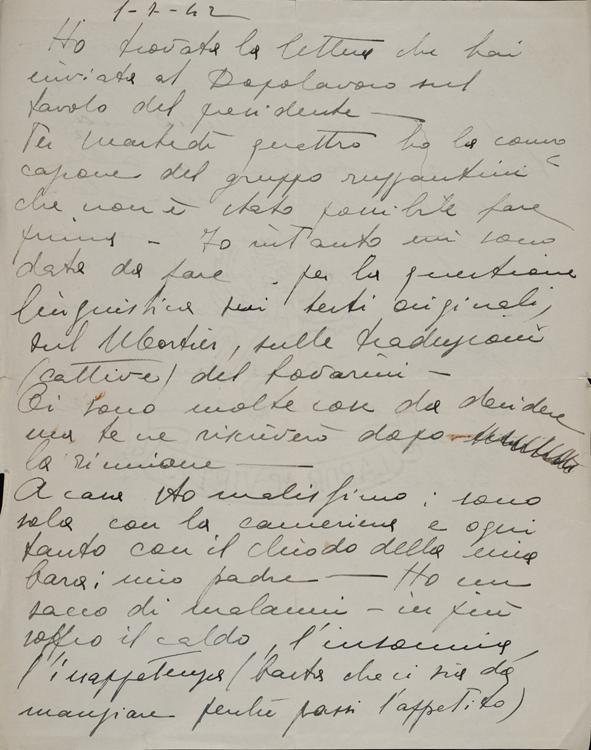 1-7-42
Ho trovata la lettera che hai
inviata al Dopolavoro sul
tavolo del presidente —
Per Martedì quattro ho la convo
cazione del gruppo ruzzantini
che non è stato possibile fare
prima - Io intanto mi sono
data da fare per la questione
linguistica sui testi originali,
sul Mortier, sulle traduzioni
(cattive) del Lovarini -
Ci sono molte cose da decidere
ma te ne riscriverò dopo
la riunione —
A casa sto malissimo; sono
sola con la cameriera e ogni
tanto con il chiodo della mia
bara; mio padre — Ho un
sacco di malanni - in più
soffro il caldo, l'insonnia,
l'inappetenza (basta che ci sia da
mangiare perché passi l'appetito)